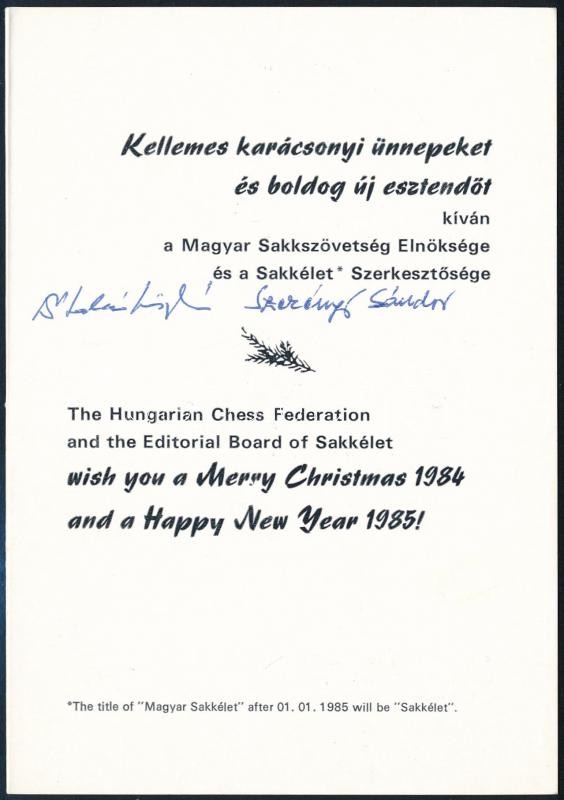 Kellemes karácsonyi ünnepeket
és boldog új esztendőt
kíván
a Magyar Sakkszövetség Elnöksége
és a Sakkélet* Szerkesztősége
Szerényi Sándor
The Hungarian Chess Federation
and the Editorial Board of Sakkélet
wish you a Merry Christmas 1984
and a Happy New Year 1985!
*The title of "Magyar Sakkélet" after 01. 01. 1985 will be "Sakkélet".